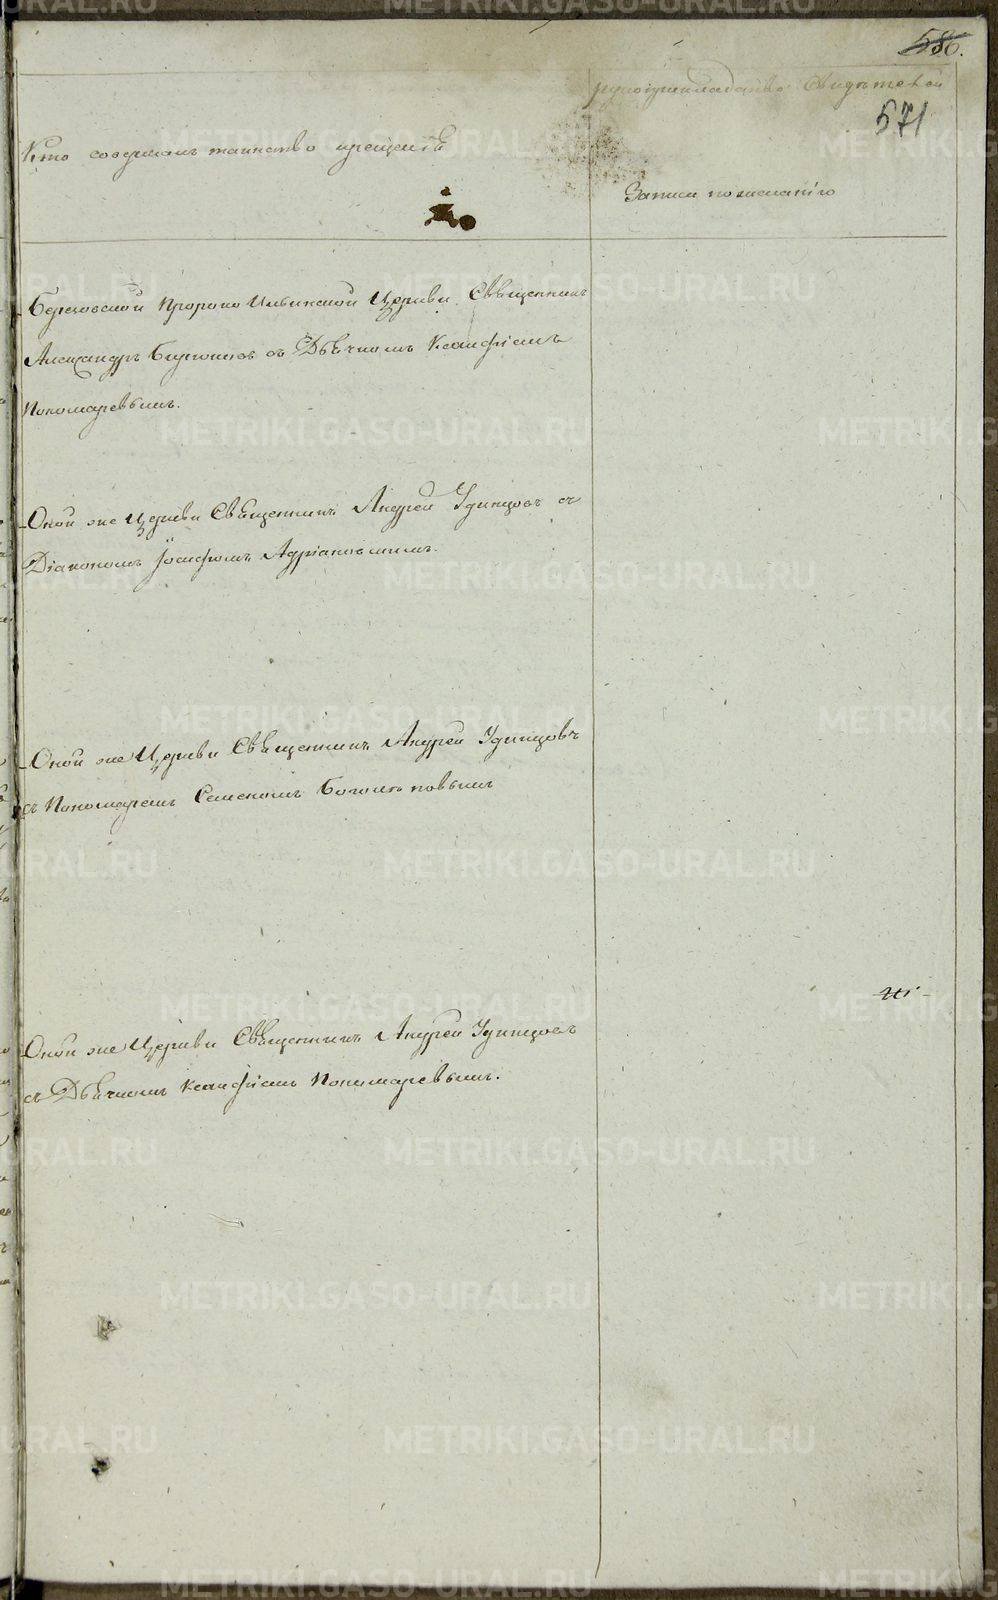 586.
рукоприкладство Свидѣтелей
571
Кто совершалъ таинство крещенія
Записи по желанію
Березовской Пророко Ильинской Церкви Священникъ
Александръ Бирюковъ съ Дьячкомъ Ксанфіемъ
Пономаревымъ.
Оной же Церкви Священникъ Андрей Удинцовъ съ
Діакономъ Іосифомъ Адріановымъ.
Оной же Церкви Священникъ Андрей Удинцовъ
съ Пономаремъ Семеномъ Боголѣповымъ
Оной же Церкви Священникъ Андрей Удинцовъ
съ Дьячкомъ Ксанфіемъ Пономаревымъ.
METRIKI.GASO-URAL.RU